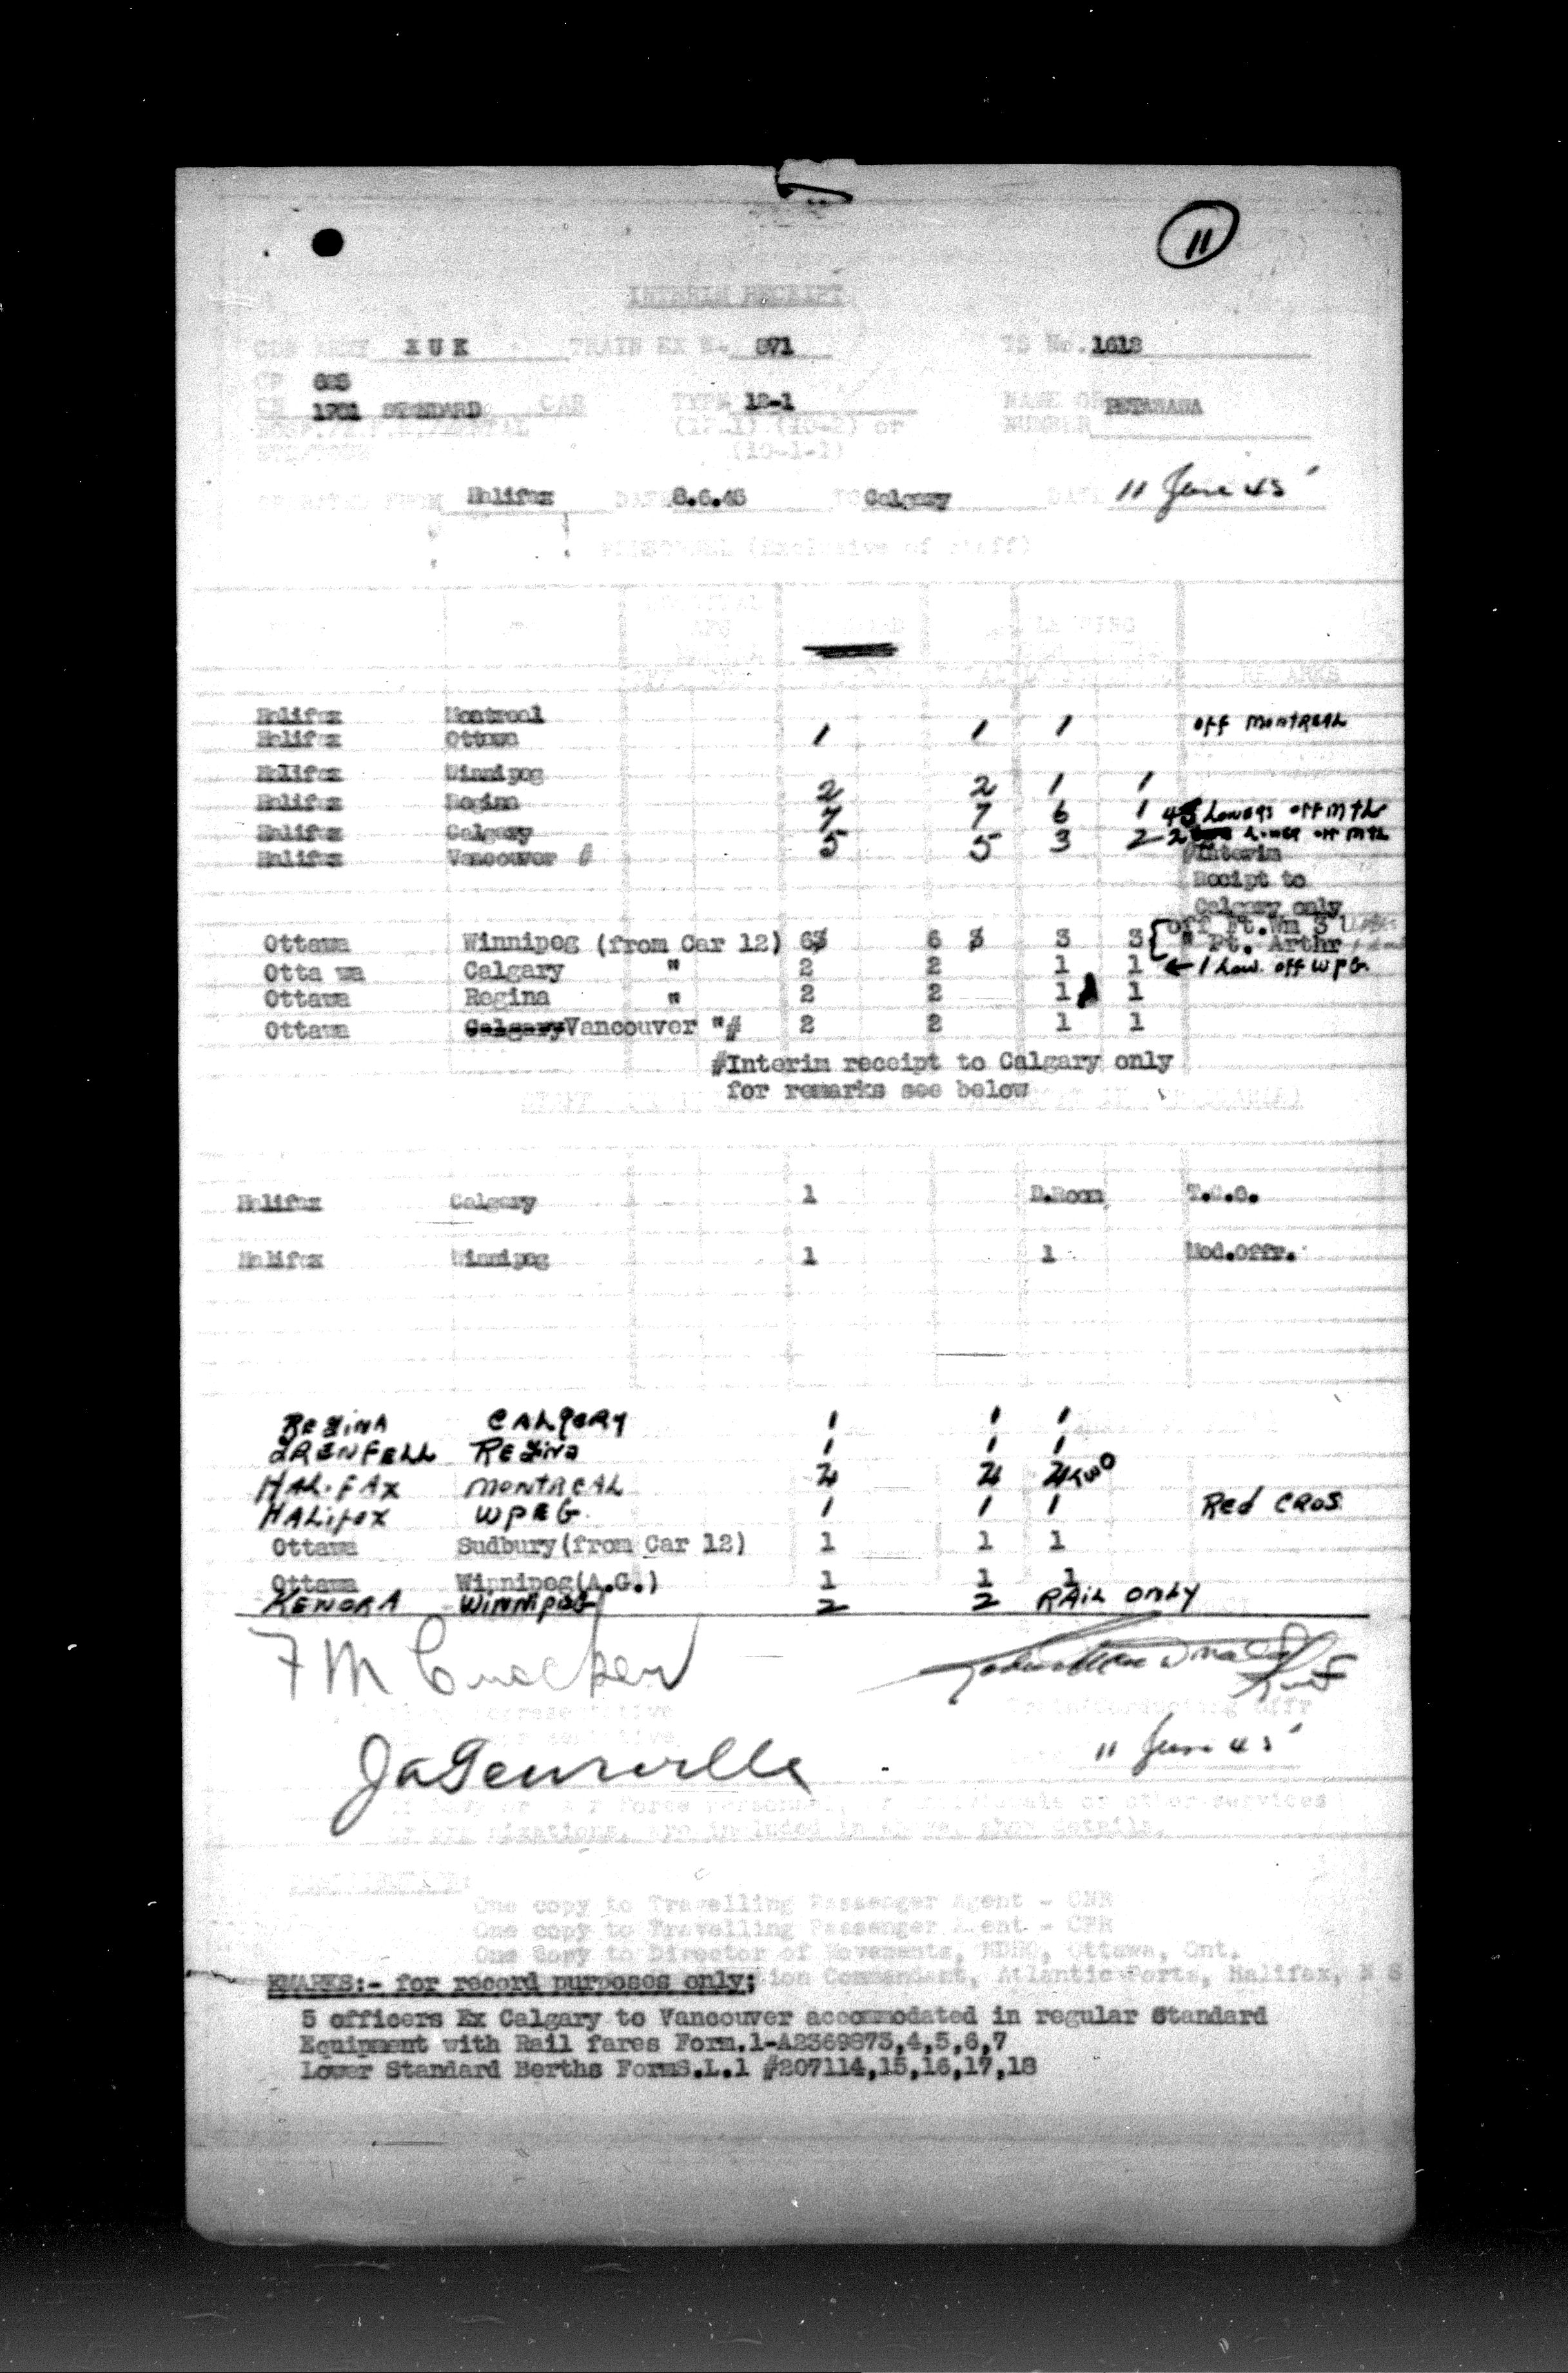 11
INTERIM RECEIPT
CDN ARMY X U K TRAIN EX W. 871 TS No. 1618
CP
CN 1701 STANDARD CAR TYPE 12-1 NAME OR PETAWAWA
(12-1) (10-2) or NUMBER
(10-1-1)
OPERATED FROM Halifax DATE 8.6.45 TO Calgary DATE 11 June 45
PERSONNEL (Exclusive of staff)
REMARKS
Halifax Montreal
Halifax Ottawa 1 1 1 off MONTREAL
Halifax Winnipeg
Halifax Regina 2 2 1 1
Halifax Calgary 7 7 6 1 Lowers off mtl
Halifax Vancouver # 5 5 3 2 2 Lower off mtl
#Interim
Recipt to
Calgary only
Ottawa Winnipeg (from Car 12) 6 6 3 3 off Ft.Wm 3
" Pt. Arthr
Otta wa Calgary " 2 2 1 1 ← 1 Low. off WPG.
Ottawa Regina " 2 2 1 1
Ottawa Calgary Vancouver "# 2 2 1 1
#Interim receipt to Calgary only
for remarks see below
Halifax Calgary 1 D.Room T.C.O.
Halifax Winnipeg 1 1 Med.Offr.
REGINA CALGERY 1 1 1
GRENFELL REGINA 1 1 1
HALIFAX MONTREAL 2 2 2 TWO
HALIFAX WPEG. 1 1 1 Red CROS
Ottawa Sudbury(from Car 12) 1 1 1
Ottawa Winnipeg(A.G.) 1 1 1
KENORA WINNIPEG 2 2 RAIL ONLY
F M
representative Train Conducting Offr
representative 11 June 45
If Navy or Air Force personnel, or individuals of other services
or organizations, are included in above, show details.
One copy to Travelling Passenger Agent - CNR
One copy to Travelling Passenger Agent - CPR
One Copy to Director of Movements, NDHQ, Ottawa, Ont.
EMARKS:- for record purposes only; tion Commandant, Atlantic Ports, Halifax, N S
5 officers Ex Calgary to Vancouver accommodated in regular Standard
Equipment with Rail fares Form.1-A2369873,4,5,6,7
Lower Standard Berths FormS.L.1 #207114,15,16,17,18